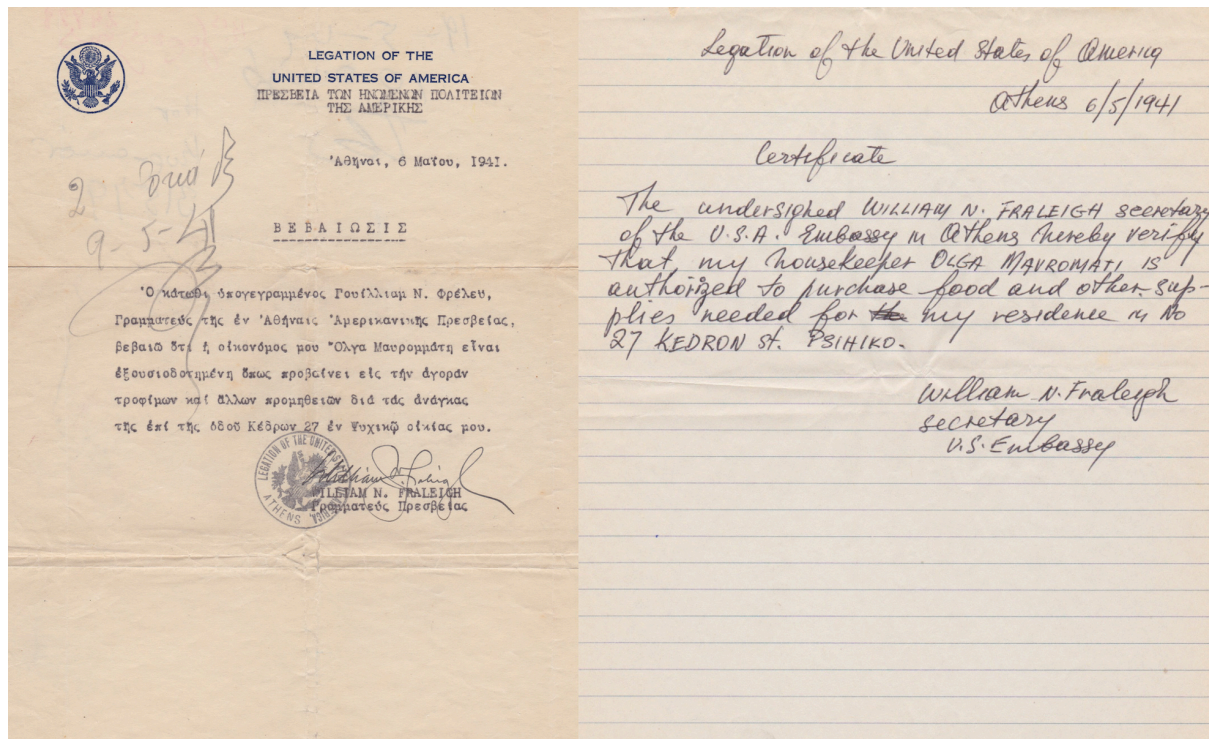 LEGATION OF THE
UNITED STATES OF AMERICA
ΠΡΕΣΒΕΙΑ ΤΩΝ ΗΝΩΜΕΝΩΝ ΠΟΛΙΤΕΙΩΝ
ΤΗΣ ΑΜΕΡΙΚΗΣ
'Αθήναι, 6 Μαΐου, 1941.
2
9-5-41
ΒΕΒΑΙΩΣΙΣ
'Ο κάτωθι ὑπογεγραμμένος Γουίλλιαμ Ν. Φρέλευ,
Γραμματεύς τῆς ἐν 'Αθήναις 'Αμερικανικῆς Πρεσβείας,
βεβαιῶ ὅτι ἡ οἰκονόμος μου "Ολγα Μαυρομμάτη εἶναι
ἐξουσιοδοτημένη ὅπως προβαίνει εἰς τήν ἀγοράν
τροφίμων καί ἄλλων προμηθειῶν διά τάς ἀνάγκας
τῆς ἐπί τῆς ὁδοῦ Κέδρων 27 ἐν Ψυχικῷ οἰκίας μου.
LEGATION OF THE UNITED
ATHENS
William N. Fraleigh
WILLIAM N. FRALEIGH
Γραμματεύς Πρεσβείας
Legation of the United States of America
Athens 6/5/1941
Certificate
The undersighed WILLIAM N. FRALEIGH secretary
of the U.S.A. Embassy in Athens hereby verify
that my housekeeper OLGA MAVROMATI IS
authorized to purchase food and other sup-
plies needed for my residence in No
27 KEDRON St. PSIHIKO.
William N. Fraleigh
secretary
U.S. Embassy